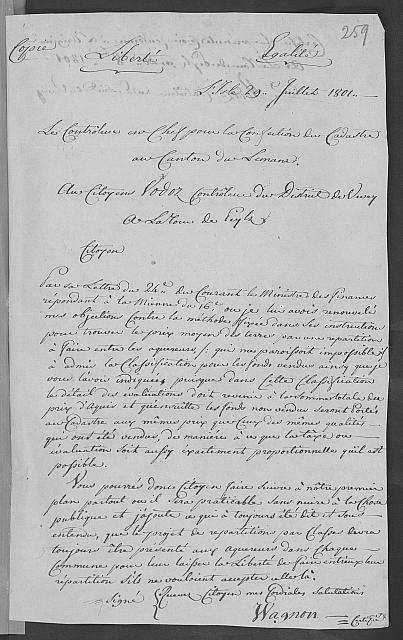 259
Copie
Liberté Egalité
L'Isle 29. Juillet 1801.
Le Contrôleur en Chef pour la Confection du Cadastre
au Canton du Léman.
Au Citoyen Vodoz Contrôleur du District de Vevey
A La Tour de Peylz
Citoyen
Par sa Lettre du 24e du Courant le Ministre des finances
répondant à la Mienne du 16e ou je lui avois renouvellé
mes objections Contre la méthode fixée dans ses instructions
pour trouver le prix moyen des terres, par une repartition
à faire entre les aquereurs /: qui me paroissoit impossible :/
à admis la Classification pour les fonds vendus ainsy que je
vous l'avois indiqué, puisque dans Cette Classification
le détail des évaluations doit revenir à la Somme totale des
prix d'Aquis et qu'ensuitte les fonds non vendus seront portés
au Cadastre aux mêmes prix que Ceux des mêmes qualités
que ont été vendus, de manière à ce que la taxe ou
évaluation Soit aussy exactement proportionnelle qu'il est
possible.
Vous pourrés donc Citoyen faire suivre à nôtre premier
plan partout ou il sera praticable Sans nuire à la Chose
publique et j'ajoute ce qui a toujours été dit et sous
entendu, que le projet de repartitions par Classes devra
toujours être presenté aux aquereurs dans chaque
Commune pour leur laisser la Liberté de faire entr'eux leur
répartition S'ils ne vouloient accepter celle là.
Signé Citoyen mes Cordiales Salutations
Wagnon